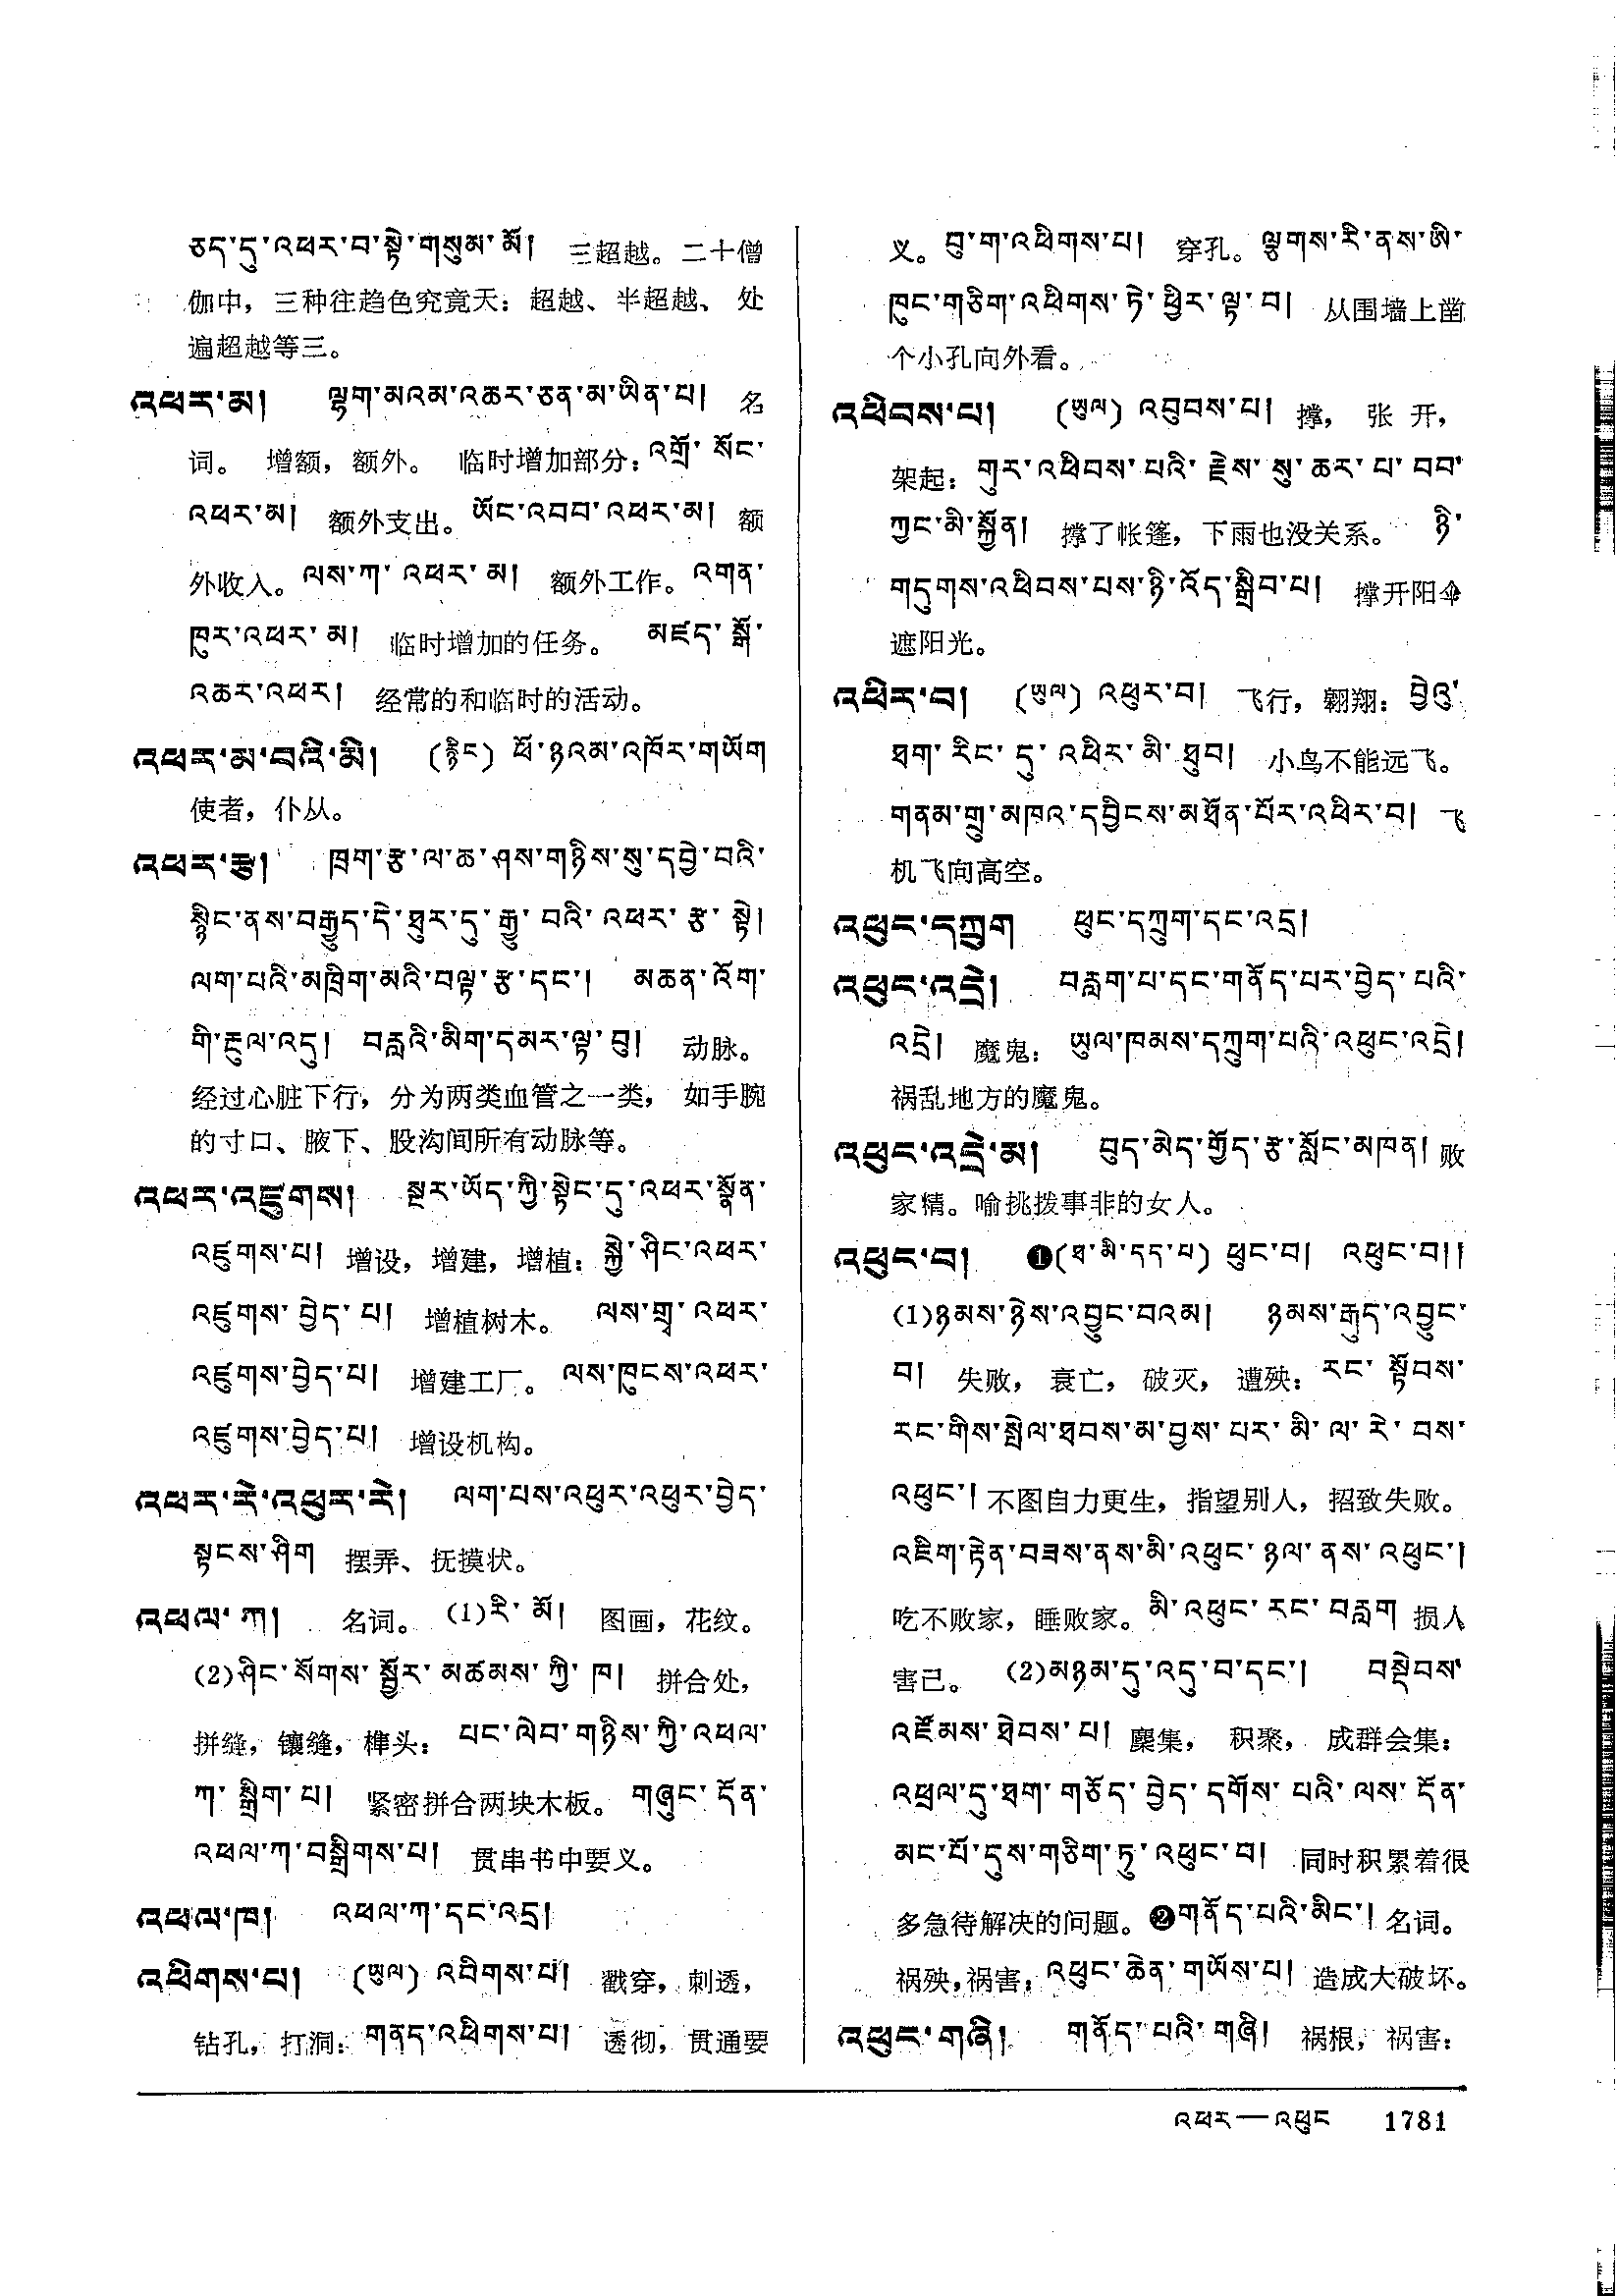 ཅད་དུ་འཕར་བ་སྟེ་གསུམ་མོ། 三超越。二十僧
伽中，三种往趋色究竟天：超越、半超越、处
遍超越等三。
འཕར་མ། ལྷག་མའམ་འཆར་ཅན་མ་ཡིན་པ། 名
词。 增额，额外。 临时增加部分：འགྲོ་སོང་
འཕར་མ། 额外支出。ཡོང་འབབ་འཕར་མ། 额
外收入。ལས་ཀ་འཕར་མ། 额外工作。འགན་
ཁུར་འཕར་མ། 临时增加的任务。 མཛད་སྒོ་
འཆར་འཕར། 经常的和临时的活动。
འཕར་མ་བའི་མི། (རྙིང) ཕོ་ཉའམ་འཁོར་གཡོག
使者，仆从。
འཕར་རྩ། ཁྲག་རྩ་ལ་ཆ་ཤས་གཉིས་སུ་དབྱེ་བའི་
སྙིང་ནས་བརྒྱུད་དེ་ཐུར་དུ་རྒྱུ་བའི་འཕར་རྩ་སྟེ།
ལག་པའི་མཁྲིག་མའི་བལྟ་རྩ་དང་། མཆན་འོག་
གི་རྔུལ་འདུ། བརླའི་མིག་དམར་ལྟ་བུ། 动脉。
经过心脏下行，分为两类血管之一类， 如手腕
的寸口、腋下、股沟间所有动脉等。
འཕར་འཛུགས། སྔར་ཡོད་ཀྱི་སྟེང་དུ་འཕར་སྣོན་
འཛུགས་པ། 增设，增建，增植：སྐྱེ་ཤིང་འཕར་
འཛུགས་བྱེད་པ། 增植树木。 ལས་གྲྭ་འཕར་
འཛུགས་བྱེད་པ། 增建工厂。ལས་ཁུངས་འཕར་
འཛུགས་བྱེད་པ། 增设机构。
འཕར་རེ་འཕུར་རེ། ལག་པས་འཕུར་འཕུར་བྱེད་
སྟངས་ཤིག 摆弄、抚摸状。
འཕལ་ཀ། 名词。 (1)རི་མོ། 图画，花纹。
(2)ཤིང་སོགས་སྦྱོར་མཚམས་ཀྱི་ཁ། 拼合处，
拼缝，镶缝，榫头： པང་ལེབ་གཉིས་ཀྱི་འཕལ་
ཀ་སྒྲིག་པ། 紧密拼合两块木板。གཞུང་དོན་
འཕལ་ཀ་བསྒྲིགས་པ། 贯串书中要义。
འཕལ་ཁ། འཕལ་ཀ་དང་འདྲ།
འཕིགས་པ། (ཡུལ) འབིགས་པ། 戳穿，刺透，
钻孔，打洞：གནད་འཕིགས་པ། 透彻，贯通要
义。བུ་ག་འཕིགས་པ། 穿孔。ལྕགས་རི་ནས་ཨི་
ཁུང་གཅིག་འཕིགས་ཏེ་ཕྱིར་ལྟ་བ། 从围墙上凿
个小孔向外看。
འཕིབས་པ། (ཡུལ) འབུབས་པ། 撑， 张 开，
架起：གུར་འཕིབས་པའི་རྗེས་སུ་ཆར་པ་བབ་
ཀྱང་མི་སྐྱོན། 撑了帐篷，下雨也没关系。 ཉི་
གདུགས་འཕིབས་པས་ཉི་འོད་སྒྲིབ་པ། 撑开阳伞
遮阳光。
འཕིར་བ། (ཡུལ) འཕུར་བ། 飞行，翱翔：བྱིའུ་
ཐག་རིང་དུ་འཕིར་མི་ཐུབ། 小鸟不能远飞。
གནམ་གྲུ་མཁའ་དབྱིངས་མཐོན་པོར་འཕིར་བ། 飞
机飞向高空。
འཕུང་དཀྲུག ཕུང་དཀྲུག་དང་འདྲ།
འཕུང་འདྲེ། བརླག་པ་དང་གནོད་པར་བྱེད་པའི་
འདྲེ། 魔鬼： ཡུལ་ཁམས་དཀྲུག་པའི་འཕུང་འདྲེ།
祸乱地方的魔鬼。
འཕུང་འདྲེ་མ། བུད་མེད་གྱོད་རྩ་སློང་མཁན། 败
家精。喻挑拨事非的女人。
འཕུང་བ། ❶(ཐ་མི་དད་པ) ཕུང་བ། འཕུང་བ།།
(1)ཉམས་ཉེས་འབྱུང་བའམ། ཉམས་རྒུད་འབྱུང་
བ། 失败， 衰亡， 破灭， 遭殃：རང་སྟོབས་
རང་གིས་སྤེལ་ཐབས་མ་བྱས་པར་མི་ལ་རེ་བས་
འཕུང་། 不图自力更生，指望别人，招致失败。
འཇིག་རྟེན་བཟས་ནས་མི་འཕུང་ཉལ་ནས་འཕུང་།
吃不败家，睡败家。མི་འཕུང་རང་བརླག 损人
害己。 (2)མཉམ་དུ་འདུ་བ་དང་། བསྡེབས་
འཛོམས་ཐེབས་པ། 麇集， 积聚， 成群会集：
འཕྲལ་དུ་ཐག་གཅོད་བྱེད་དགོས་པའི་ལས་དོན་
མང་པོ་དུས་གཅིག་ཏུ་འཕུང་བ། 同时积累着很
多急待解决的问题。❷གནོད་པའི་མིང་། 名词。
祸殃，祸害：འཕུང་ཆེན་གཡོས་པ། 造成大破坏。
འཕུང་གཞི། གནོད་པའི་གཞི། 祸根， 祸害：
འཕར — འཕུང 1781